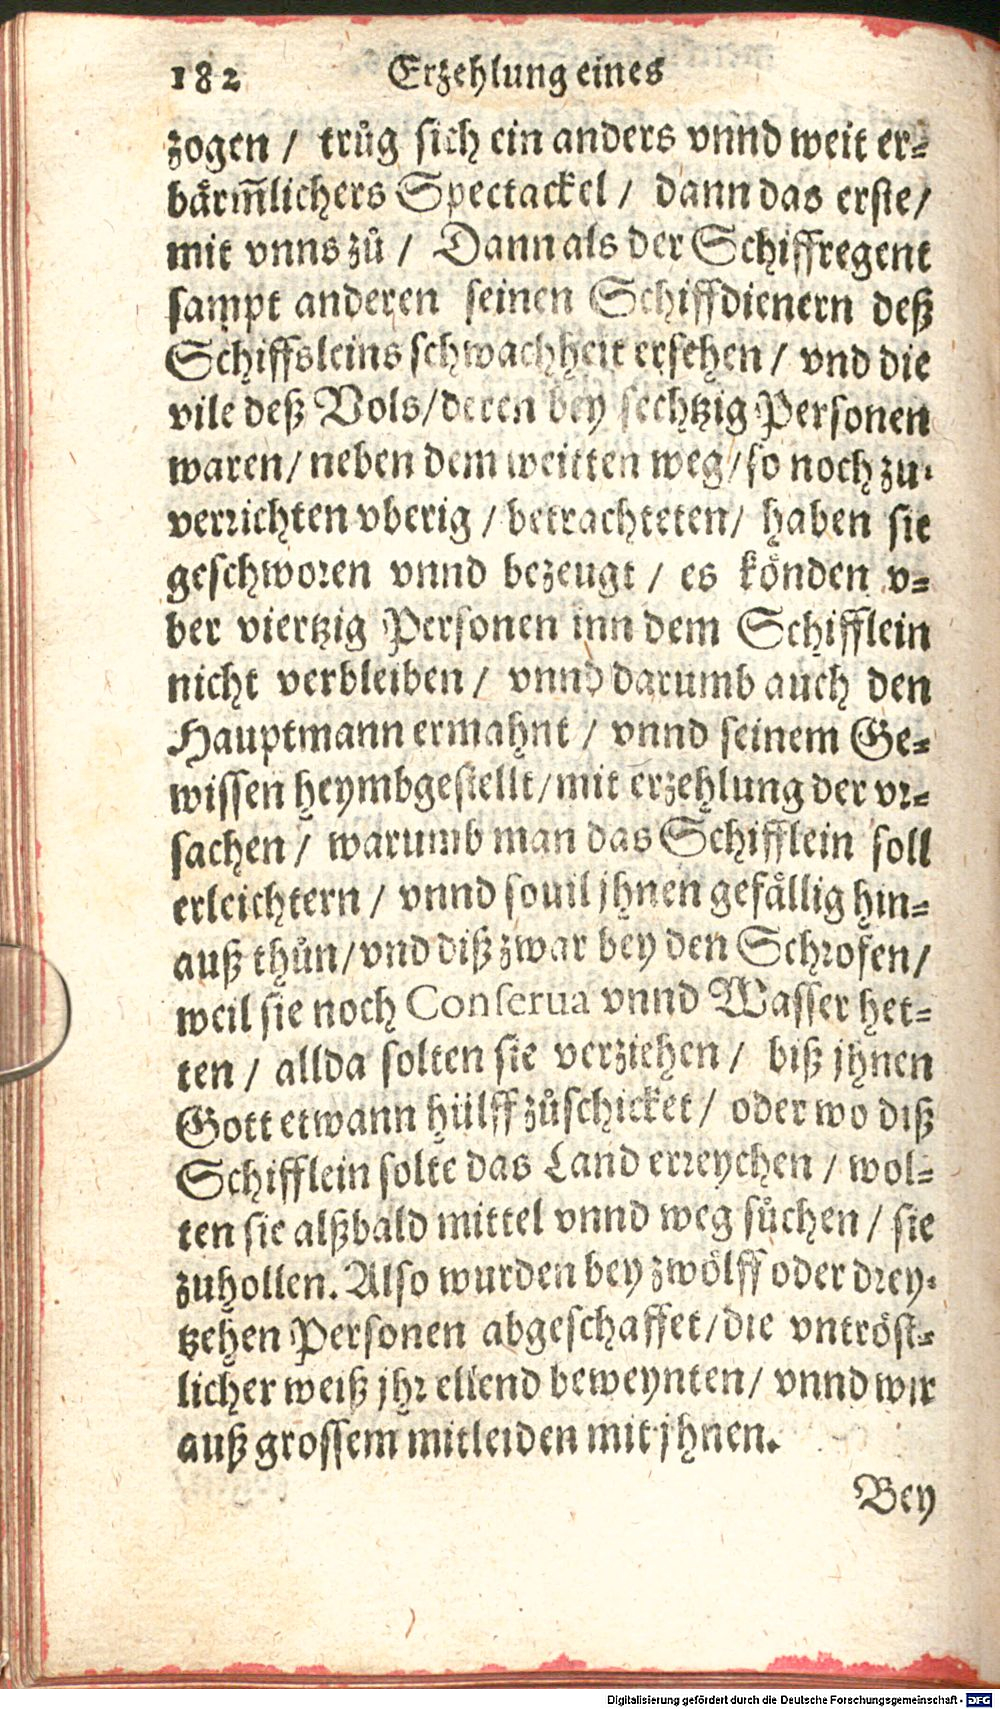 182 Erzehlung eines
zogen / trůg sich ein anders vnnd weit er-
bärm̃lichers Spectackel / dann das erste /
mit vnns zů / Dann als der Schiffregent
sampt anderen seinen Schiffdienern deß
Schiffsleins schwachheit ersehen / vnd die
vile deß Vols / deren bey sechtzig Personen
waren / neben dem weitten weg / so noch zu-
verrichten vberig / betrachteten / haben sie
geschworen vnnd bezeugt / es könden v-
ber viertzig Personen inn dem Schifflein
nicht verbleiben / vnnd darumb auch den
Hauptmann ermahnt / vnnd seinem Ge-
wissen heymbgestellt / mit erzehlung der vr-
sachen / warumb man das Schifflein soll
erleichtern / vnnd souil jhnen gefällig hin-
auß thůn / vnd diß zwar bey den Schrofen /
weil sie noch Conserua vnnd Wasser het-
ten / allda solten sie verziehen / biß jhnen
Gott etwann hülff zůschicket / oder wo diß
Schifflein solte das Land erreychen / wol-
ten sie alßbald mittel vnnd weg sůchen / sie
zuhollen. Also wurden bey zwölff oder drey-
tzehen Personen abgeschaffet / die vntröst-
licher weiß jhr ellend beweynten / vnnd wir
auß grossem mitleiden mit jhnen.
Bey
Digitalisierung gefördert durch die Deutsche Forschungsgemeinschaft - DFG